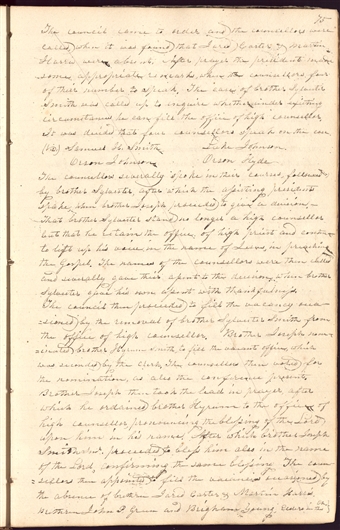 75
The council came to order and the counsellors were
called, when it was found that Jared Carter & Martin
Harris were absent. After prayer the president made
some appropriate remarks, when the councillors four
of their number to speak. The case of brother Sylvester
Smith was called up to inquire whether under existing
circumstances he can fill the office of high counsellor
It was decided that four counsellors speak on the case
(viz) Samuel H. Smith Luke Johnson
Orson Johnson Orson Hyde
The counsellors severally spoke in their course, followed
by brother Sylvester, after which the assisting presidents
spoke, when brother Joseph proceeded to give a decision,
That brother Sylvester stand no longer a high counsellor
but that he retain the office of high priest and continue
to lift up his voice in the name of Jesus, in preaching
the Gospel. The names of the counsellors were then called
and severally gave their assent to this decision, when brother
Sylvester gave his own assent with thankfulness.
The council then proceeded to fill the vacancy occa-
sioned by the removal of brother Sylvester Smith from
the office of high counsellor. Brother Joseph nom-
inated brother Hyrum Smith to fill the vacant office which
was seconded by the clerk, The counsellors then voted for
the nomination, as also the conference present.
Brother Joseph then took the lead in prayer after
which he ordained brother Hyrum to the office of
high counsellor pronouncing the blessings of the Lord
upon him in his name, After which brother Joseph
Smith proceeded to bless him also in the name
of the Lord, confirming the same blessing. The coun-
sellors then appointed to fill the vacancies occasioned by
the absence of brothers Jared Carter & Martin Harris
Brethren John P. Green and Brigham Young,